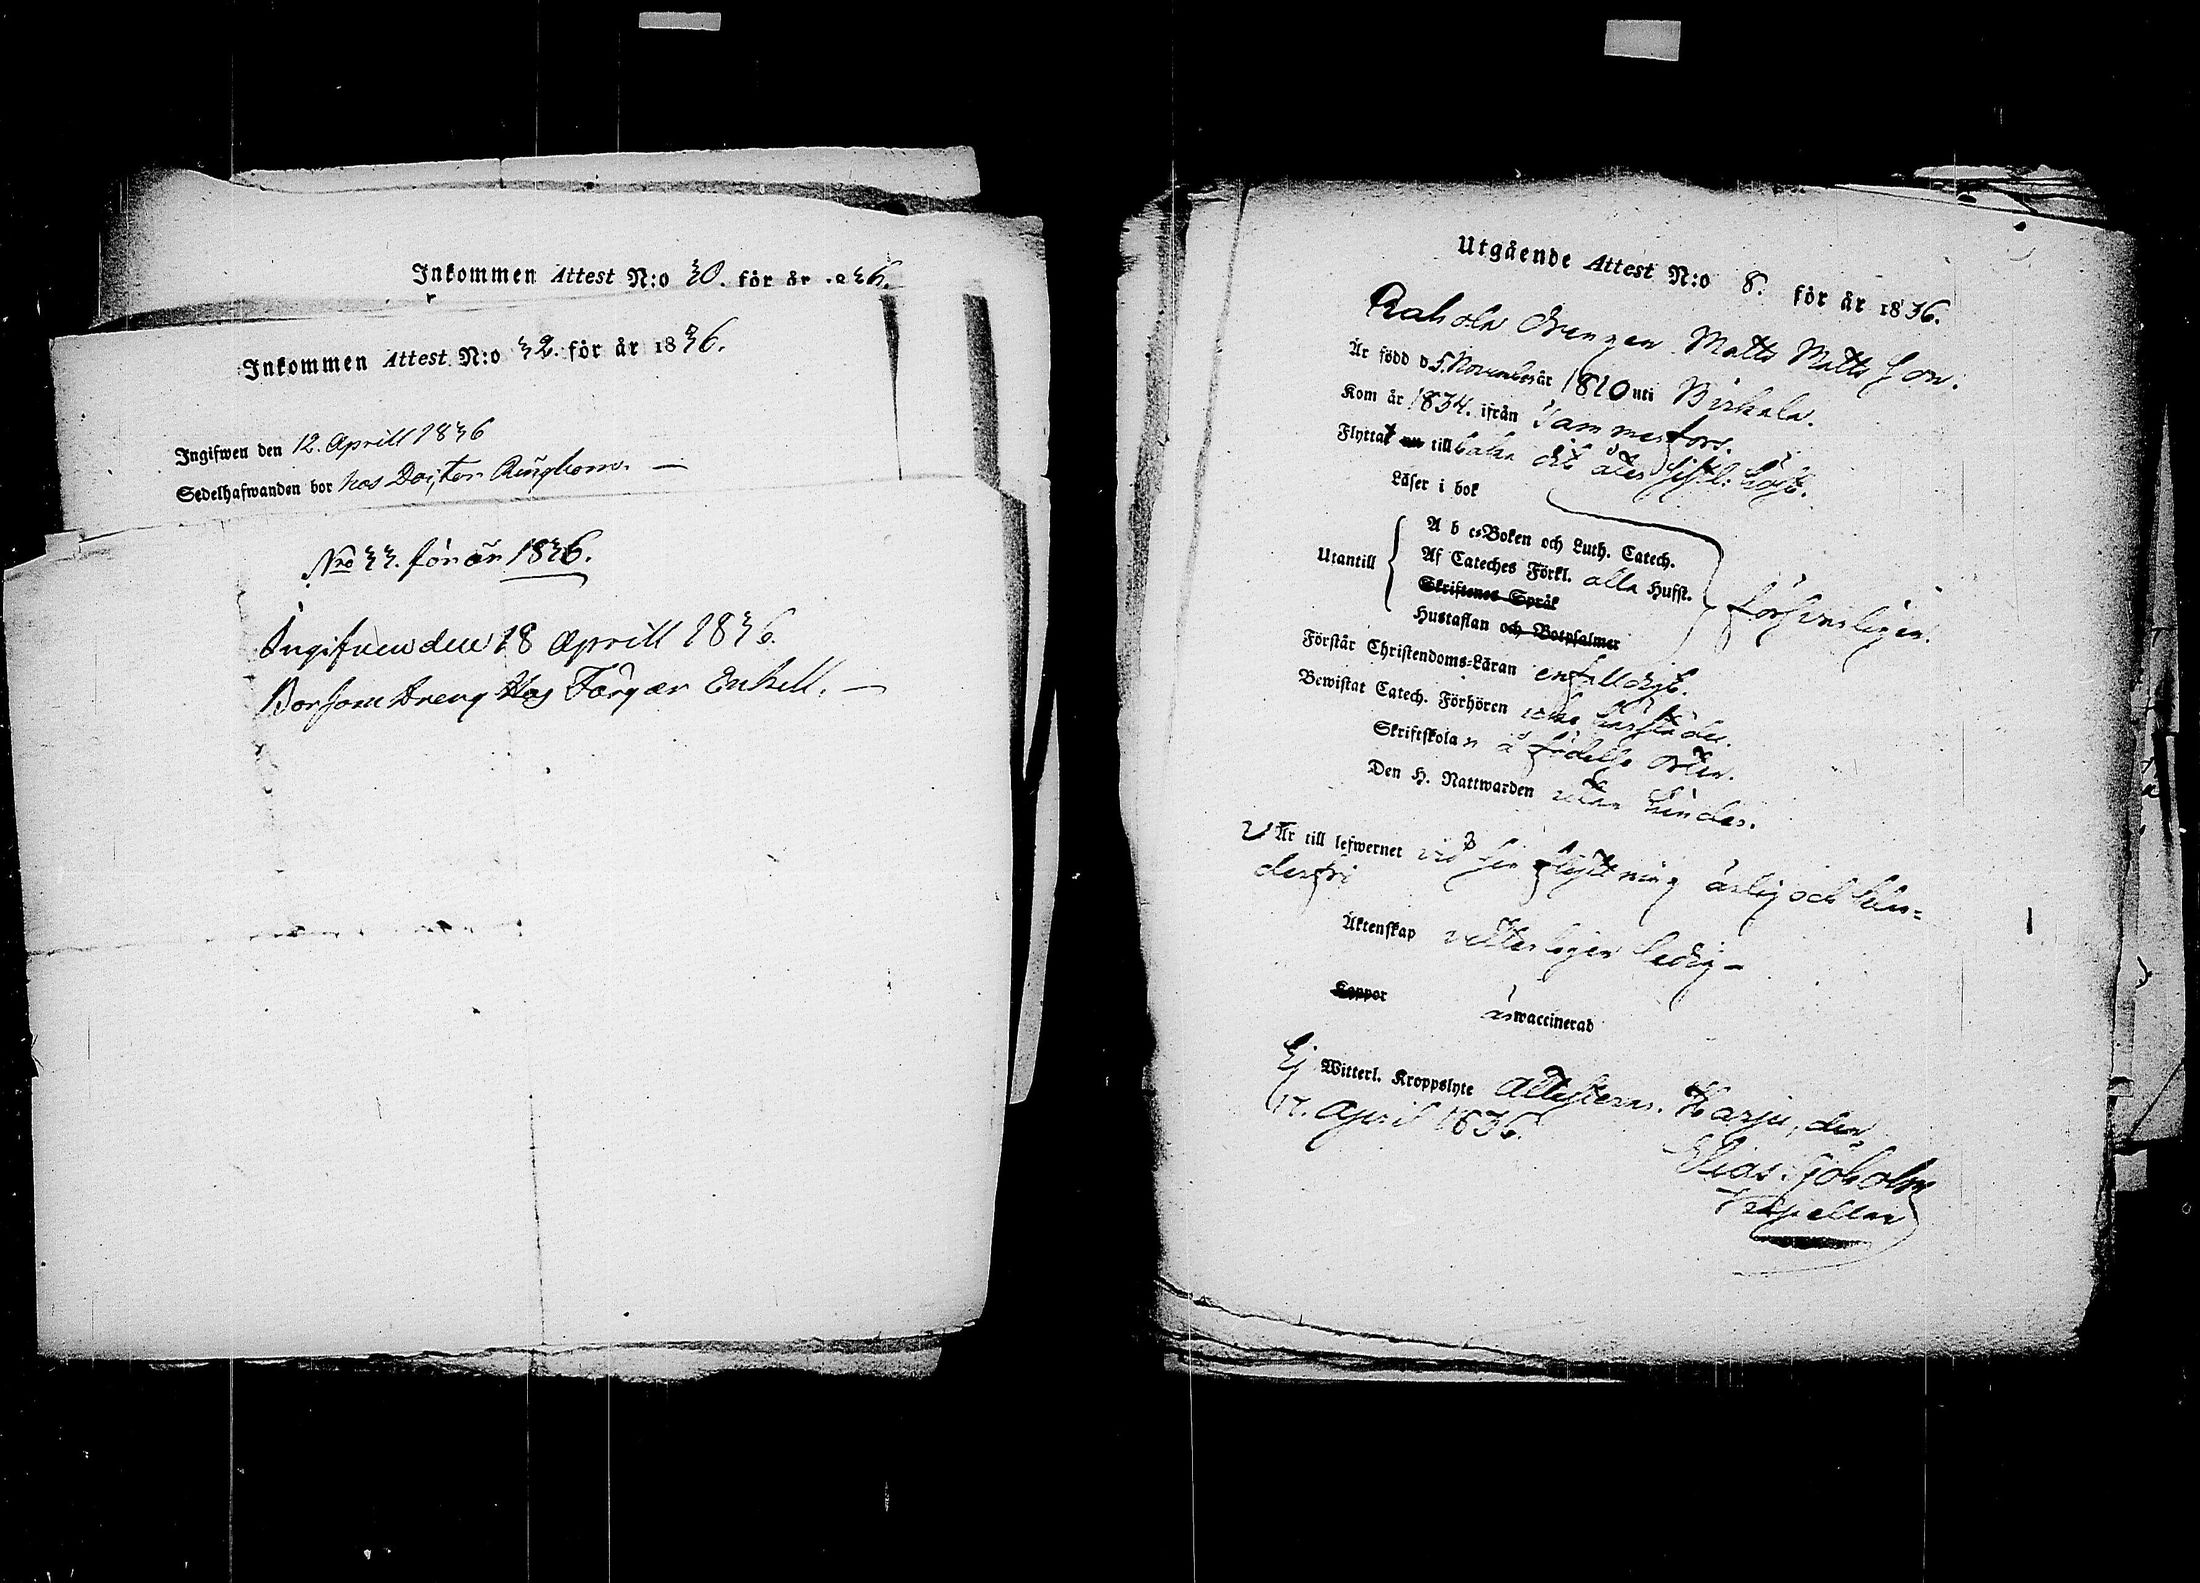 Inkommen Attest N:o 30. för år 1836.
Inkommen Attest N:o 32. för år 1836.
Ingifwen den 12. Aprill 1836
Sedelhafwanden bor hos Docktor Ringbom. —
Nro 33. för år 1836.
Ingifven den 18 Aprill 1836.
Bor som Dreng Hos Färgar Enkell. —
Utgående Attest N:o 8. för år 1836.
Rahola Drengen Matts Matts Son.
Är född d 5. November år 1810 uti Birkala.
Kom år 1834. ifrån Tammerfors.
Flyttat nu till baka dit åter
Läser i bok
A b c-Boken och Luth. Catech.
Utantill Af Cateches Förkl. alla Hufst. försvarligen.
Skriftenes Språk
Hustaflan och Botpsalmer
Förstår Christendoms-Läran enfaldigt.
Bewistat Catech. Förhören icke härstädes.
Skriftskolan å födelse orten.
Den H. Nattwarden utan hinder.
Är till lefwernet vid sin flyttning ärlig och hin-
dersfri
Äktenskap vitterligen ledig -
Koppor är waccinerad
Ej Witterl. Kroppslyte Attesteras. Harju, den
17. April 1836.
Elias Sjöholm
Kapellan